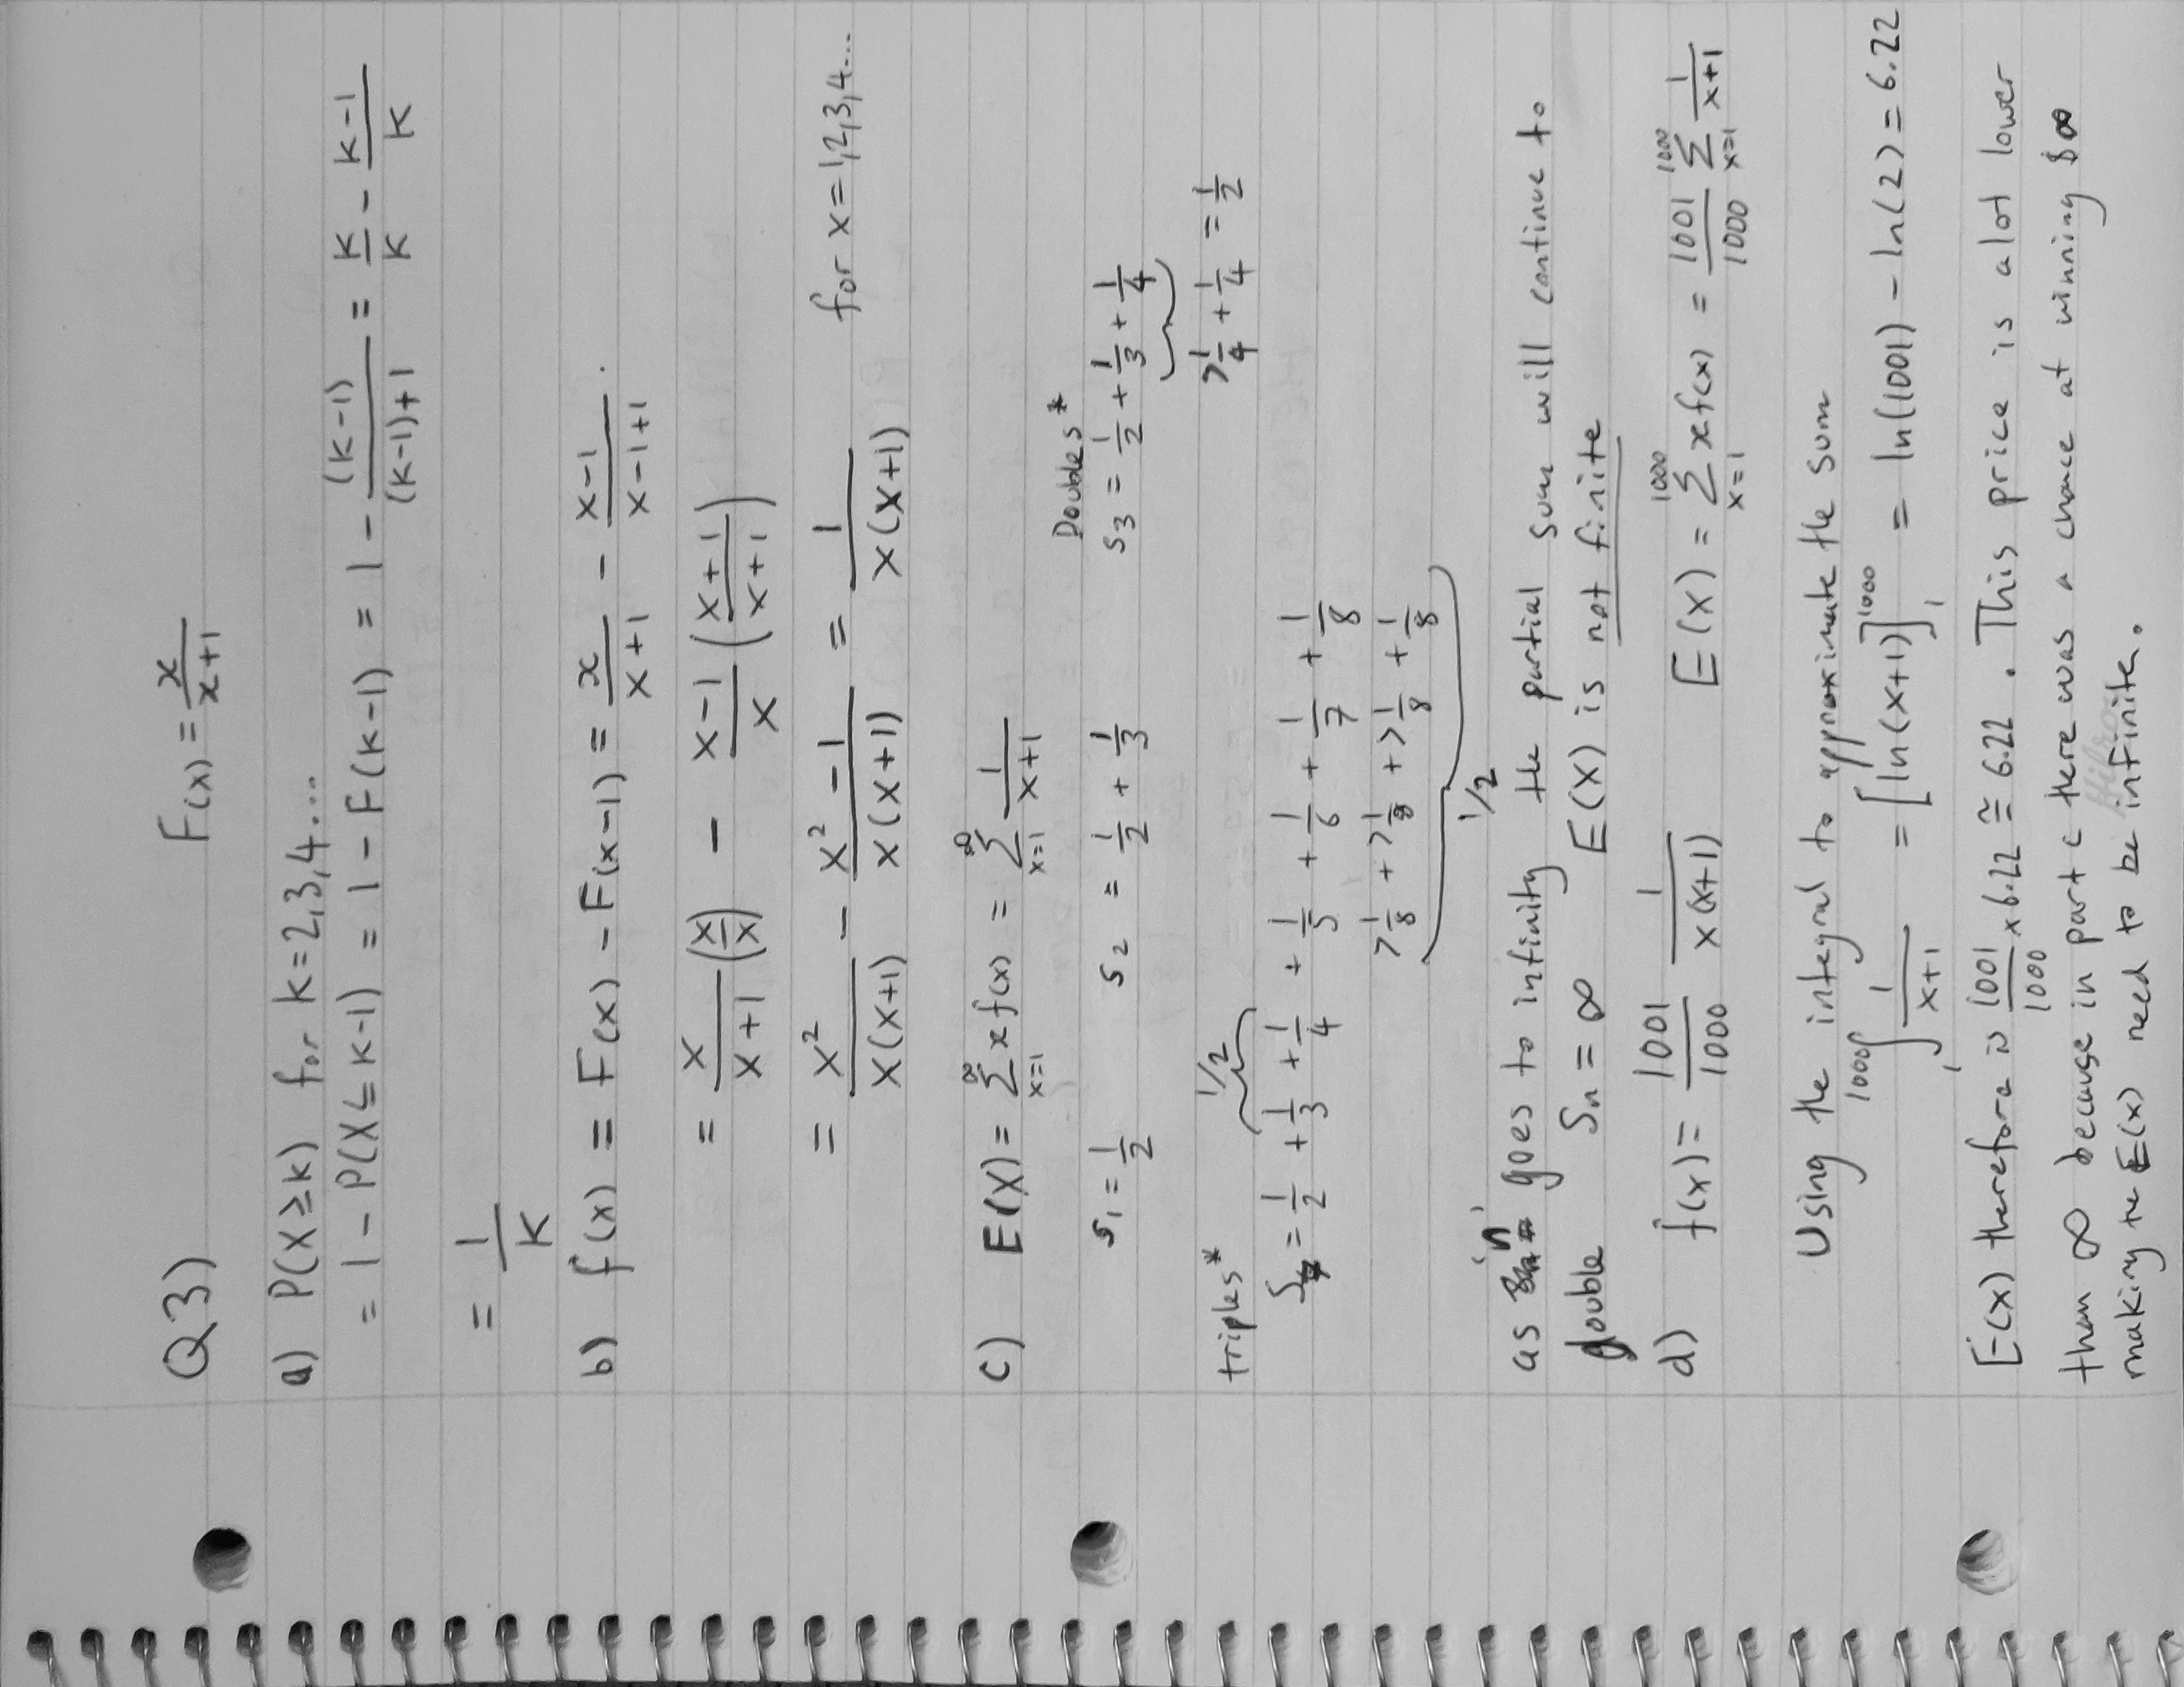 Q3) F(x) = x/(x+1)
a) P(X ≥ k) for k=2,3,4...
= 1 - P(X ≤ k-1) = 1 - F(k-1) = 1 - (k-1)/((k-1)+1) = k/k - (k-1)/k
= 1/k
b) f(x) = F(x) - F(x-1) = x/(x+1) - (x-1)/(x-1+1).
= x/(x+1) (x/x) - (x-1)/x ((x+1)/(x+1))
= x²/(x(x+1)) - (x²-1)/(x(x+1)) = 1/(x(x+1)) for x=1,2,3,4...
c) E(X) = ∞Σx=1 x f(x) = ∞Σx=1 1/(x+1)
Doubles*
S1 = 1/2 S2 = 1/2 + 1/3 S3 = 1/2 + 1/3 + 1/4
>1/4 + 1/4 = 1/2
triples* 1/2
S7 = 1/2 + 1/3 + 1/4 + 1/5 + 1/6 + 1/7 + 1/8
>1/8 + >1/8 + >1/8 + 1/8
1/2
as 'n' goes to infinity the partial sum will continue to
double Sn = ∞ E(X) is not finite
d) f(x) = 1001/1000 1/(x(x+1)) E(X) = 1000Σx=1 x f(x) = 1001/1000 1000Σx=1 1/(x+1)
Using the integral to approximate the sum
1000∫1 1/(x+1) = [ln(x+1)]1000 1 = ln(1001) - ln(2) = 6.22
E(X) therefore is 1001/1000 x 6.22 ≅ 6.22. This price is a lot lower
than ∞ because in part c there was a chance at winning $∞
making the E(x) need to be infinite.